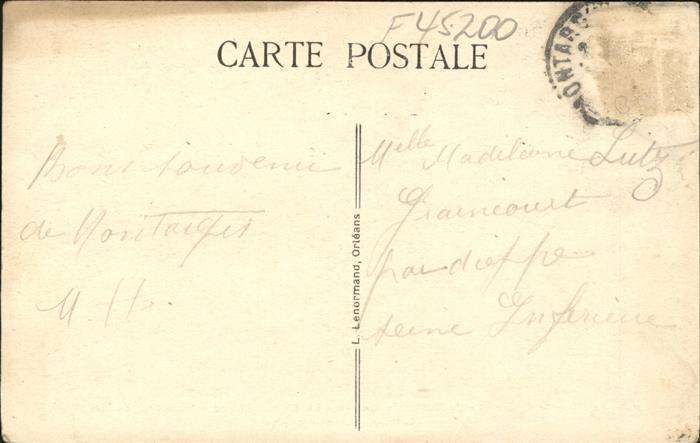 F45200
CARTE POSTALE
MONTARG
Bons souvenir
de Montargis
M H.
L. Lenormand, Orléans
Melle Madileine Lutz
Graincourt
par dieppe
seine Inferieure